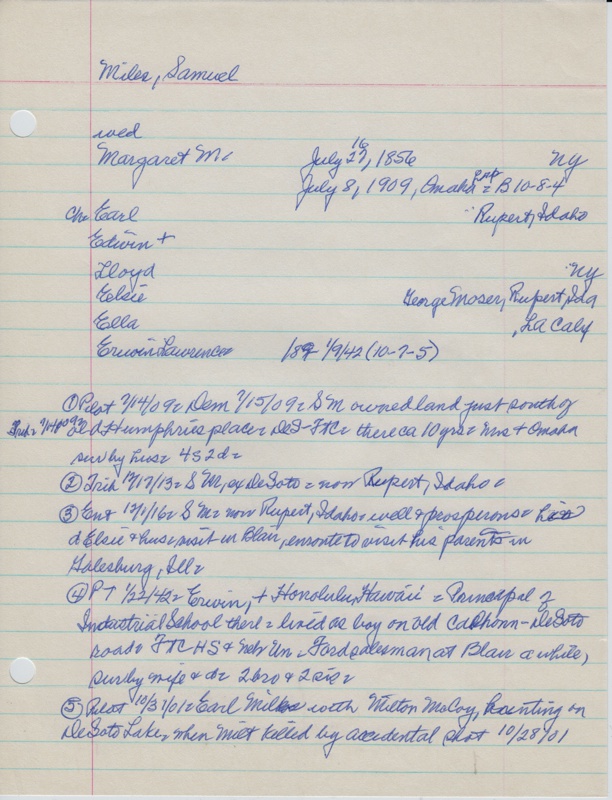 Miles, Samuel
wed
Margaret M= July 27, 1856 NY
16
July 8, 1909, Omaha = B 10-8-4
Ch= Earl Rupert, Idaho
Edwin +
Lloyd NY
Elsie George Moser, Rupert, Ida
Ella , LA Caly
Erwin Lawrence 1/9/42 (10-7-5)
① Pilot 7/14/09= Dem 7/15/09= SM owned land just south of
Trib= 7/14/09= old Humphries place= DeS= FTC= there ca 10 yrs= Mrs + Omaha
sur by hus= 4S 2d=
② Trib 12/17/13= SM, ex DeSoto= now Rupert, Idaho=
③ Ent 12/1/16= SM= now Rupert, Idaho= well & prosperous= his
d Elsie & hus visit in Blair, enroute to visit his parents in
Galesburg, Ill=
④ PT 1/22/42= Erwin, + Honolulu, Hawaii = Principal of
Industrial School there= lived as boy on old Calhoun-DeSoto
road= FTC HS & Neb Un= Ford salesman at Blair a while,
sur by wife & d= 2 bro & 2 sis=
⑤ Pilot 10/31/01= Earl Miles with Milton McCoy, hunting on
DeSoto Lake= when Milt killed by accidental shot 10/28/01